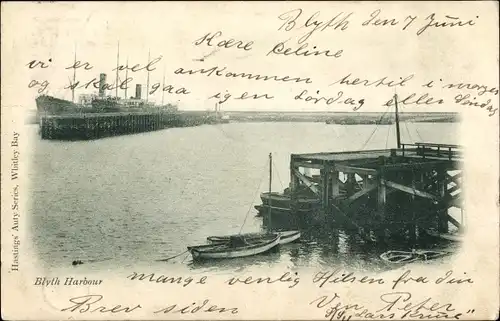 Blyth den 7 Juni
Kære Celine
vi er vel ankommen hertil i morges
og skal igen Lördag eller Söndag
Hastings' Auty Series, Whitley Bay
Blyth Harbour
mange venlig Hilsen fra din
Brev siden
Ven Peter
S/S "Lars Kruse"